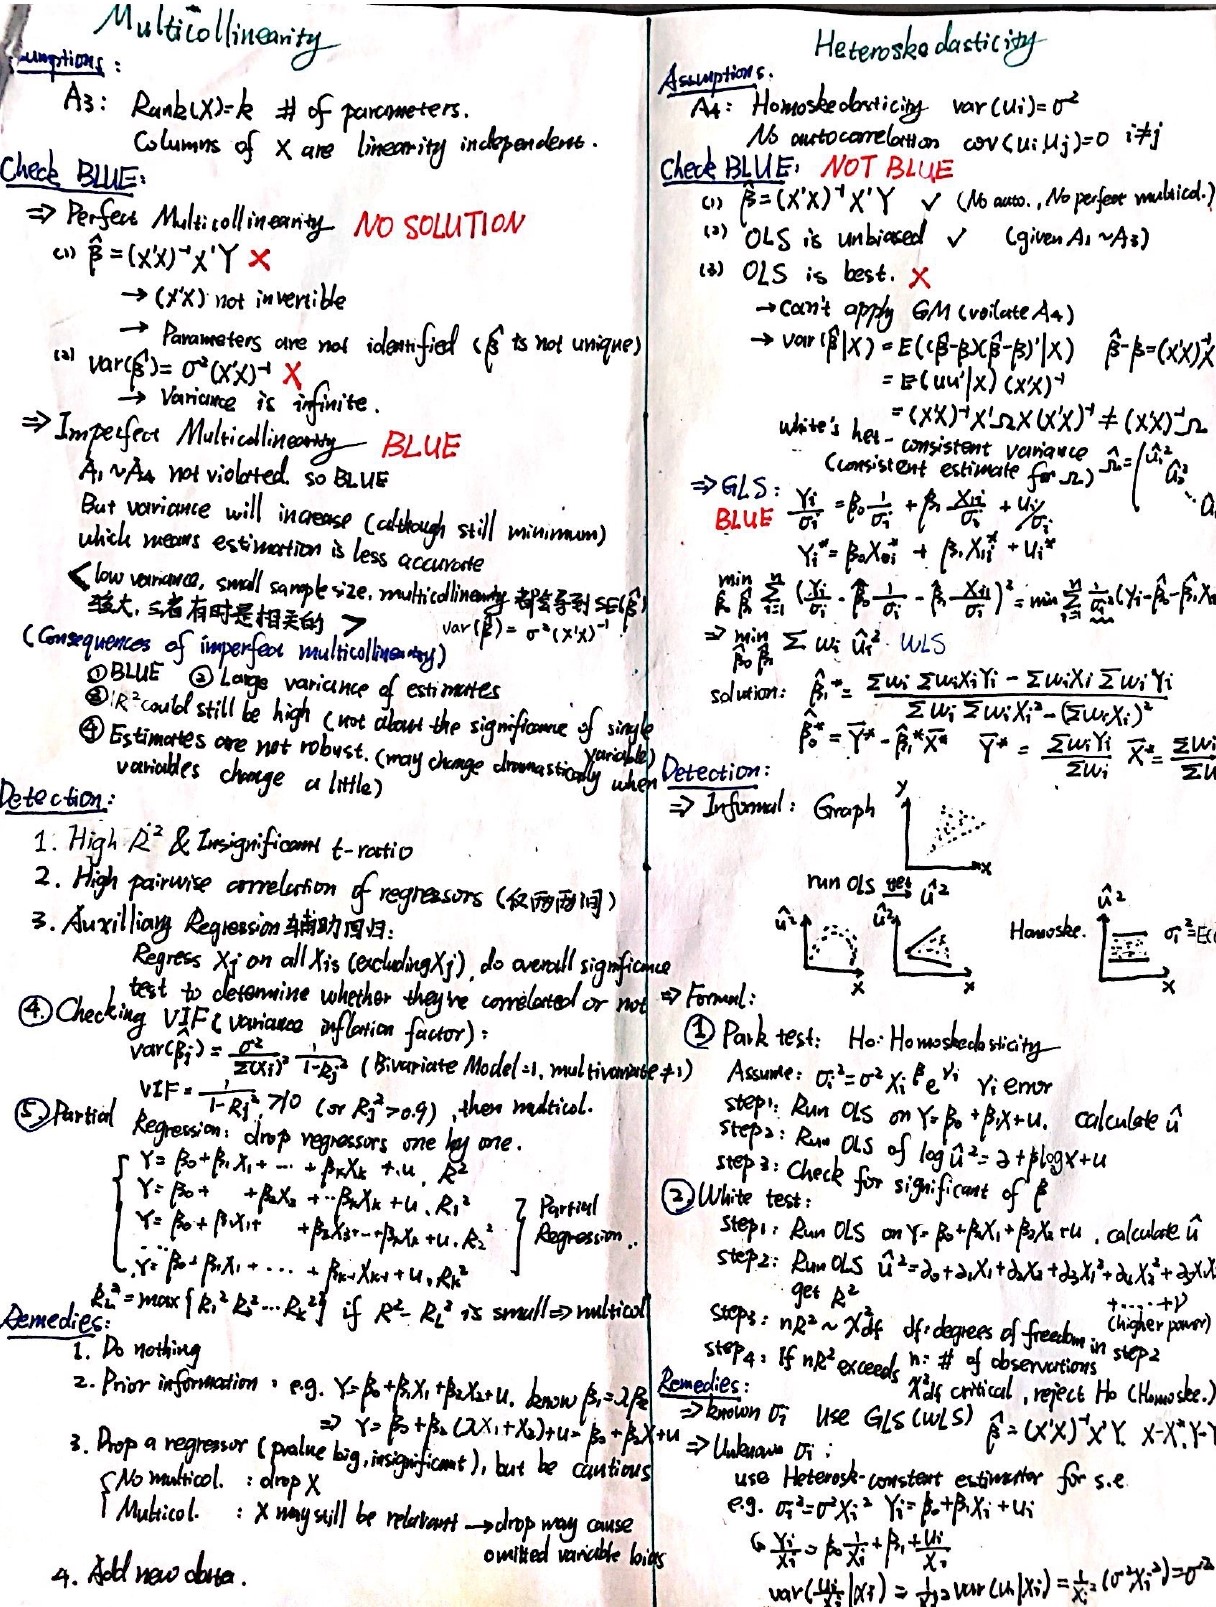 Multicollinearity
umptions:
A3: Rank(X)=k # of parameters.
Columns of X are linearity independent.
Check BLUE:
⇒ Perfect Multicollinearity NO SOLUTION
(1) β̂=(X'X)⁻¹X'Y X
→ (X'X) not invertible
→ Parameters are not identified (β̂ is not unique)
(2) var(β̂)=σ²(X'X)⁻¹ X
→ Variance is infinite.
⇒ Imperfect Multicollinearity BLUE
A1~A4 not violated. so BLUE
But variance will increase (although still minimum)
which means estimation is less accurate
<low variance, small sample size, multicollinearity 都会导致 SE(β̂)
较大, 三者有时是相关的 > var(β̂)=σ²(X'X)⁻¹
(Consequences of imperfect multicollinearity)
① BLUE ② Large variance of estimates
③ R² could still be high (not about the significance of single variable)
④ Estimates are not robust. (may change dramastically when
variables change a little)
Detection:
1. High R² & Insignificant t-ratio
2. High pairwise correlation of regressors (仅两两间)
3. Auxilliary Regression 辅助回归:
Regress Xj on all Xis (excluding Xj), do overall significance
test to determine whether they're correlated or not
④ Checking VIF (variance inflation factor):
var(β̂j)= σ²/Σ(Xi)² 1/1-Rj² (Bivariate Model=1, multivariate≠1)
VIF= 1/1-Rj² >10 (or Rj²>0.9), then multicol.
⑤ Partial Regression: drop regressors one by one.
Y=β0+β1X1+ ... +βkXk+u. R²
Y=β0+ +β2X2+...βkXk+u. R1²
Y=β0+β1X1+ +β3X3+...+βkXk+u. R2²
...
Y=β0+β1X1+ .... +βk-1Xk-1+u, Rk²
Partial
Regression..
RL²=max{R1² R2² ... Rk²} if R²-RL² is small ⇒ multicol
Remedies:
1. Do nothing
2. Prior information: e.g. Y=β0+β1X1+β2X2+u, know β1=λβ2
⇒ Y=β0+β2(λX1+X2)+u=β0+β2X+u
3. Drop a regressor (pvalue big, insignificant), but be cautious
No multicol. : drop X
Multicol. : X may still be relevant → drop may cause
omitted variable bias
4. Add new data.
Heteroskedasticity
Assumptions.
A4: Homoskedasticity var(ui)=σ²
No autocorrelation cov(ui,uj)=0 i≠j
Check BLUE: NOT BLUE
(1) β̂=(X'X)⁻¹X'Y ✓ (No auto., No perfect multicol.)
(2) OLS is unbiased ✓ (given A1~A3)
(3) OLS is best. X
→ can't apply GM (voilate A4)
→ var(β̂|X)=E((β̂-β)(β̂-β)'|X) β̂-β=(X'X)⁻¹X
=E(uu'|X)(X'X)⁻¹
=(X'X)⁻¹X'ΩX(X'X)⁻¹≠(X'X)⁻¹Ω
White's het-consistent variance
(consistent estimate for Ω) Ω̂=(û1² û2² ...
⇒ GLS: Yi/σi=β0 1/σi+β1 X1i/σi+ui/σi
BLUE
Yi*=β0X0i*+β1X1i*+ui*
min β̂0 β̂1 Σ (Yi/σi-β̂0 1/σi-β̂1 X1i/σi)²=min Σ 1/σi²(Yi-β̂0-β̂1X
⇒ min β̂0 β̂1 Σ wi ûi² WLS
solution: β̂1*= ΣwiΣwiXiYi-ΣwiXiΣwiYi / ΣwiΣwiXi²-(ΣwiXi)²
β̂0*=Ȳ*-β̂1*X̄* Ȳ*=ΣwiYi/Σwi X̄*=Σwi/Σw
Detection:
⇒ Informal: Graph
Y
X
run OLS get → û²
û² û² û²
Homoske. σi²=E(
X X X
⇒ Formal:
① Park test: Ho: Homoskedasticity
Assume: σi²=σ²Xi^β e^γi γi error
step1: Run OLS on Y=β0+β1X+u. calculate û
step2: Run OLS of log û²=α+βlogx+u
step3: Check for significant of β
② White test:
step1: Run OLS on Y=β0+β1X1+β2X2+u, calculate û
step2: Run OLS û²=α0+α1X1+α2X2+α3X1²+α4X2²+α5X1X
+....+ν
get R² (higher power)
step3: nR²~X²df df: degrees of freedom in step2
n: # of observations
step4: If nR² exceeds X²df critical, reject Ho (Homoske.)
Remedies:
⇒ known σi Use GLS (WLS) β̂=(X'X)⁻¹X'Y. X-X*. Y-Y
⇒ Unknown σi:
use Heterosk-constent estimator for s.e.
e.g. σi²=σ²Xi² Yi=β0+β1Xi+ui
↳ Yi/Xi=β0 1/Xi+β1+ui/Xi
var(ui/Xi|Xi)=1/Xi² var(ui|Xi)=1/Xi²(σ²Xi²)=σ²